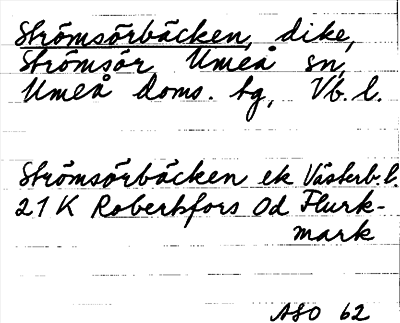 Strömsörbäcken, dike,
Strömsör, Umeå sn,
Umeå doms. tg, Vb. l.
Strömsörbäcken ek Västerb. l.
21 K Robertsfors 0d Flurk-
mark
ASO 62